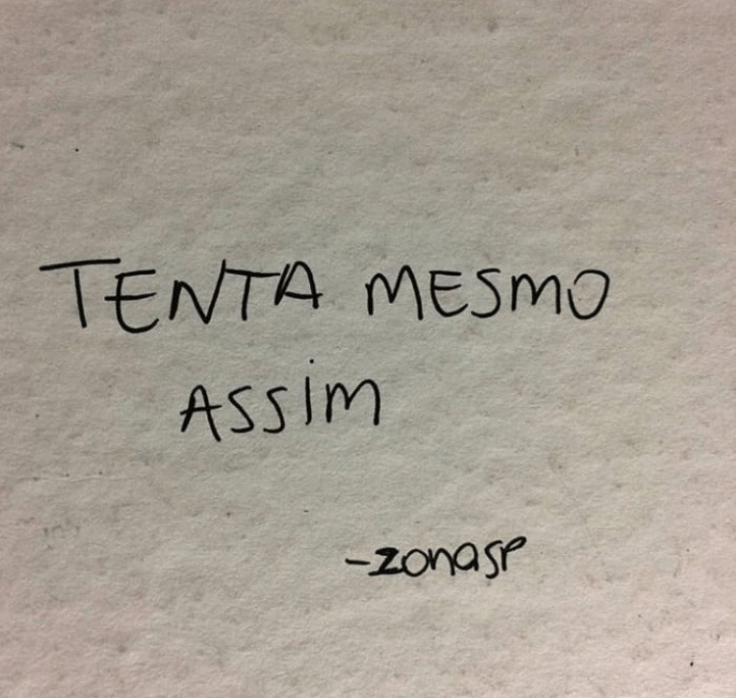 TENTA MESMO
ASSiM
-zonasp